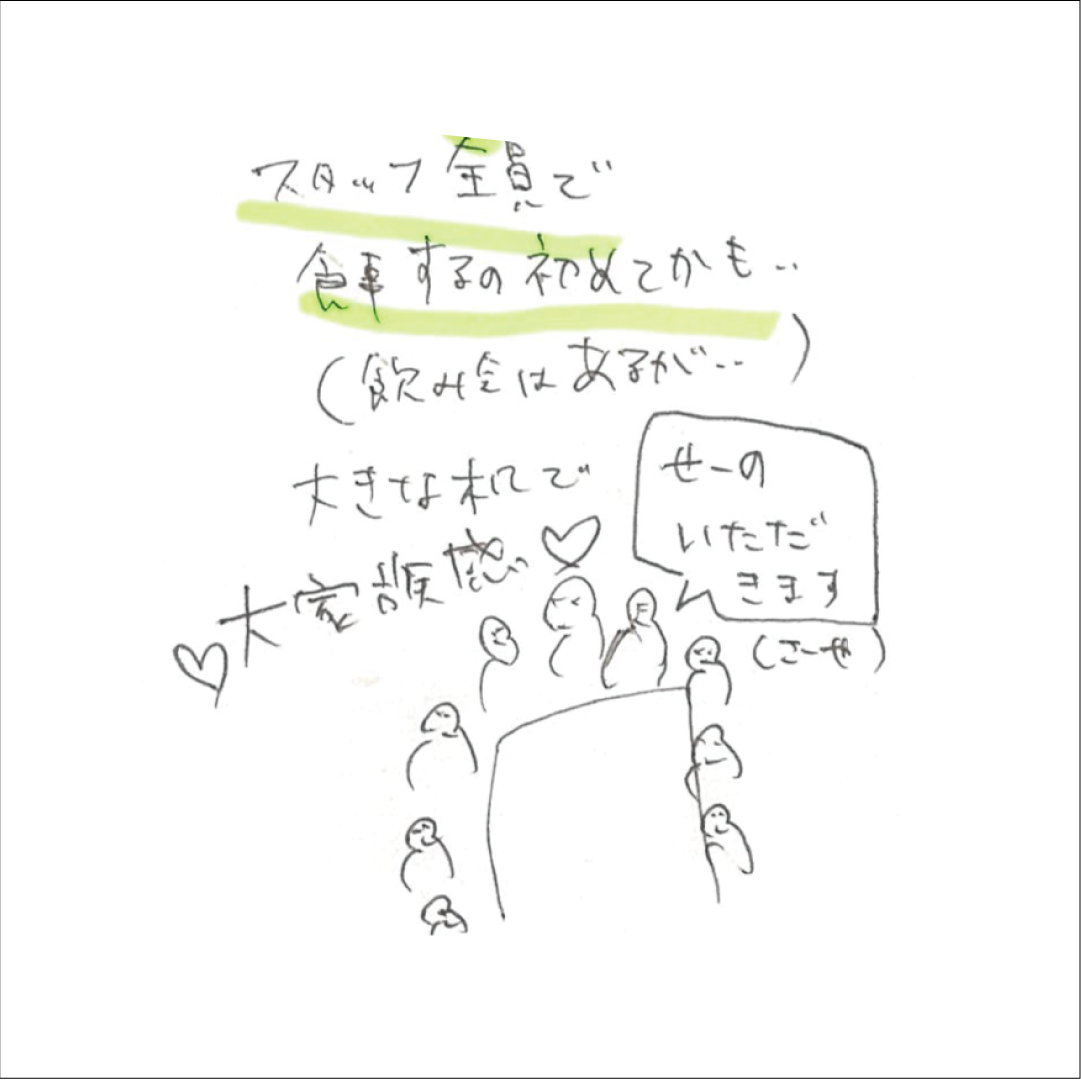 スタッフ全員で
食事するの初めてかも..
(飲み会はあるが..)
大きな机で
♡大家族感♡
せーの
いただ
きます